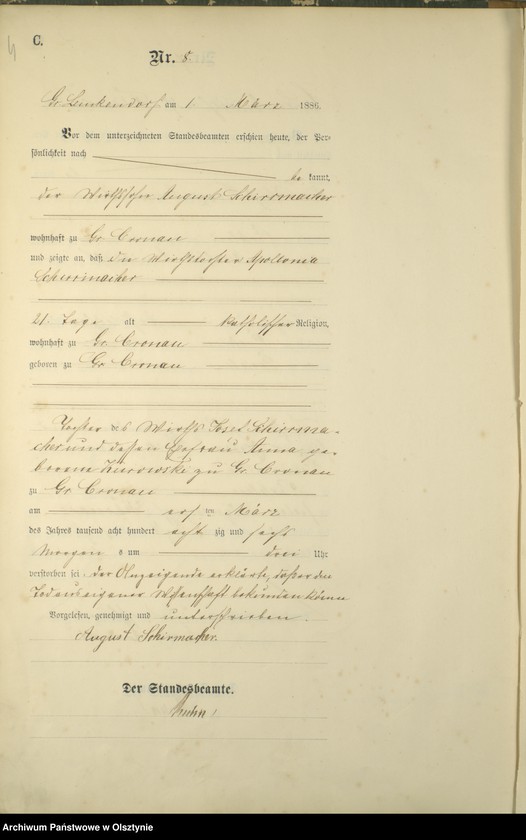 C.
Nr. 8.
Gr. Lemkendorf am 1 März 1886.
Vor dem unterzeichneten Standesbeamten erschien heute, der Per-
sönlichkeit nach
be kannt,
der Wirthssohn August Schirrmacher
wohnhaft zu Gr Cronau
und zeigte an, daß die Wirthstochter Apollonia
Schirrmacher
21. Tage alt katholischer Religion,
wohnhaft zu Gr. Cronau
geboren zu Gr. Cronau
Tochter des Wirths Josef Schirrma-
cher und dessen Ehefrau Anna ge-
borene Zurowski zu Gr. Cronau
zu Gr Cronau
am ersten März
des Jahres tausend acht hundert acht zig und sechs
Morgens um drei Uhr
verstorben sei. der Anzeigende erklärte, daß er den
Tod aus eigener Wissenschaft bekunden könne
Vorgelesen, genehmigt und unterschrieben.
August Schirmacher.
Der Standesbeamte.
Archiwum Państwowe w Olsztynie